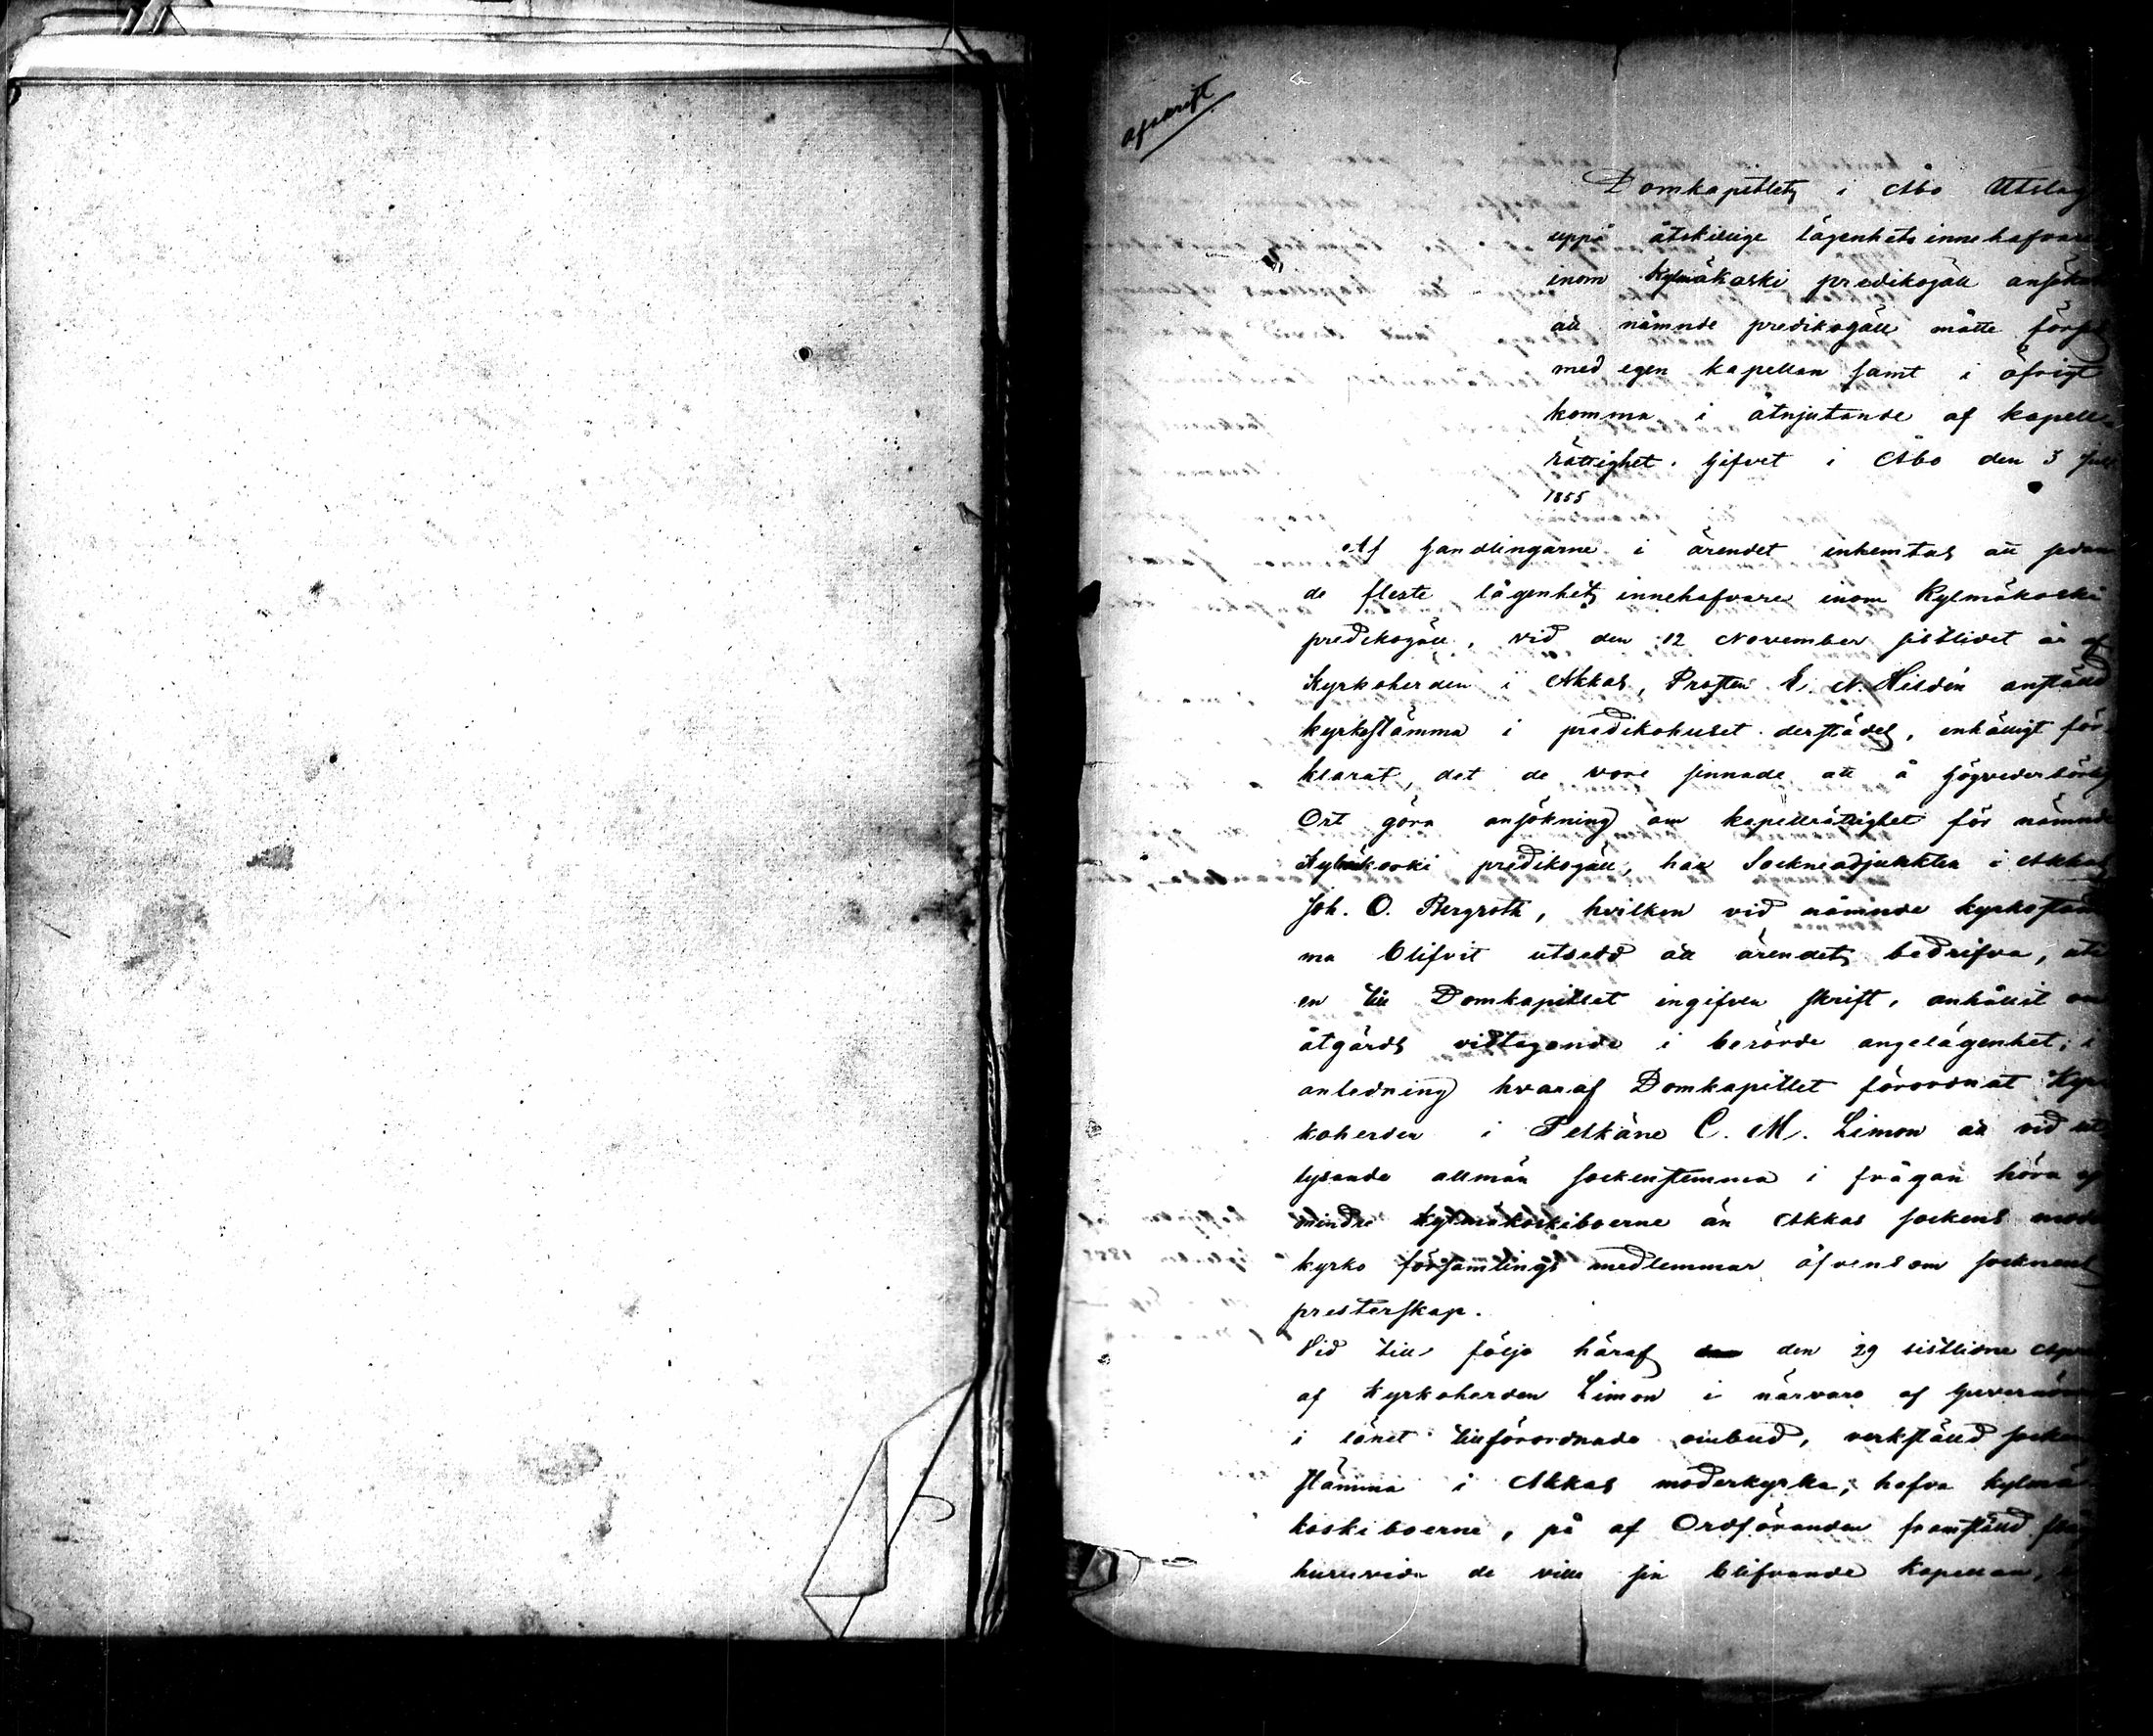 afskrift
Domkapitlets i Åbo Utslag
uppå åtskillige lägenhets innehafvares
inom Kylmäkoski predikogäll ansökan
att nämnde predikogäll måtte förses
med egen kapellan samt i öfrigt
komma i åtnjutande af kapell-
rättighet. Gifvet i Åbo den 3 Juli
1855
Af handlingarne i ärendet inhemtas att sedan
de fleste lägenhets innehafvare inom Kylmäkoski
predikogäll, vid den 12 November sistlidet år af
Kyrkoherden i Akkas, Prosten E. N. Hildén anstäld
kyrkostämma i predikohuset derstädes, enhälligt för-
klarat, det de vore sinnade att å högvederbörlig
Ort göra ansökning om kapellrättighet för nämnde
Kylmäkoski predikogäll, har Sockneadjunkten i Akkas
Joh. O. Bergroth, hvilken vid nämnde kyrkostäm-
ma blifvit utsedd att ärendet bedrifva, uti
en till Domkapitlet ingifven skrift, anhållit om
åtgärds vidtagande i berörde angelägenhet; i
anledning hvaraf Domkapitlet förordnat Kyr-
koherden i Pelkäne C. M. Limon att vid ut-
lysande allmän sockenstemma i frågan höra ej
mindre Kylmäkoskiboerne än Akkas sockens moder
kyrko församlings medlemmar äfvensom socknens
presterskap.
Vid till följe häraf den 29 sistlidne April
af Kyrkoherden Limon i närvaro af Guvernören
i länet tillförordnade ombud, verkstäld socken
stämma i Akkas moderkyrka, hafva Kylmä-
koskiboerne, på af Ordföranden framstäld fråga
huruvida de ville sin blifvande Kapellan,